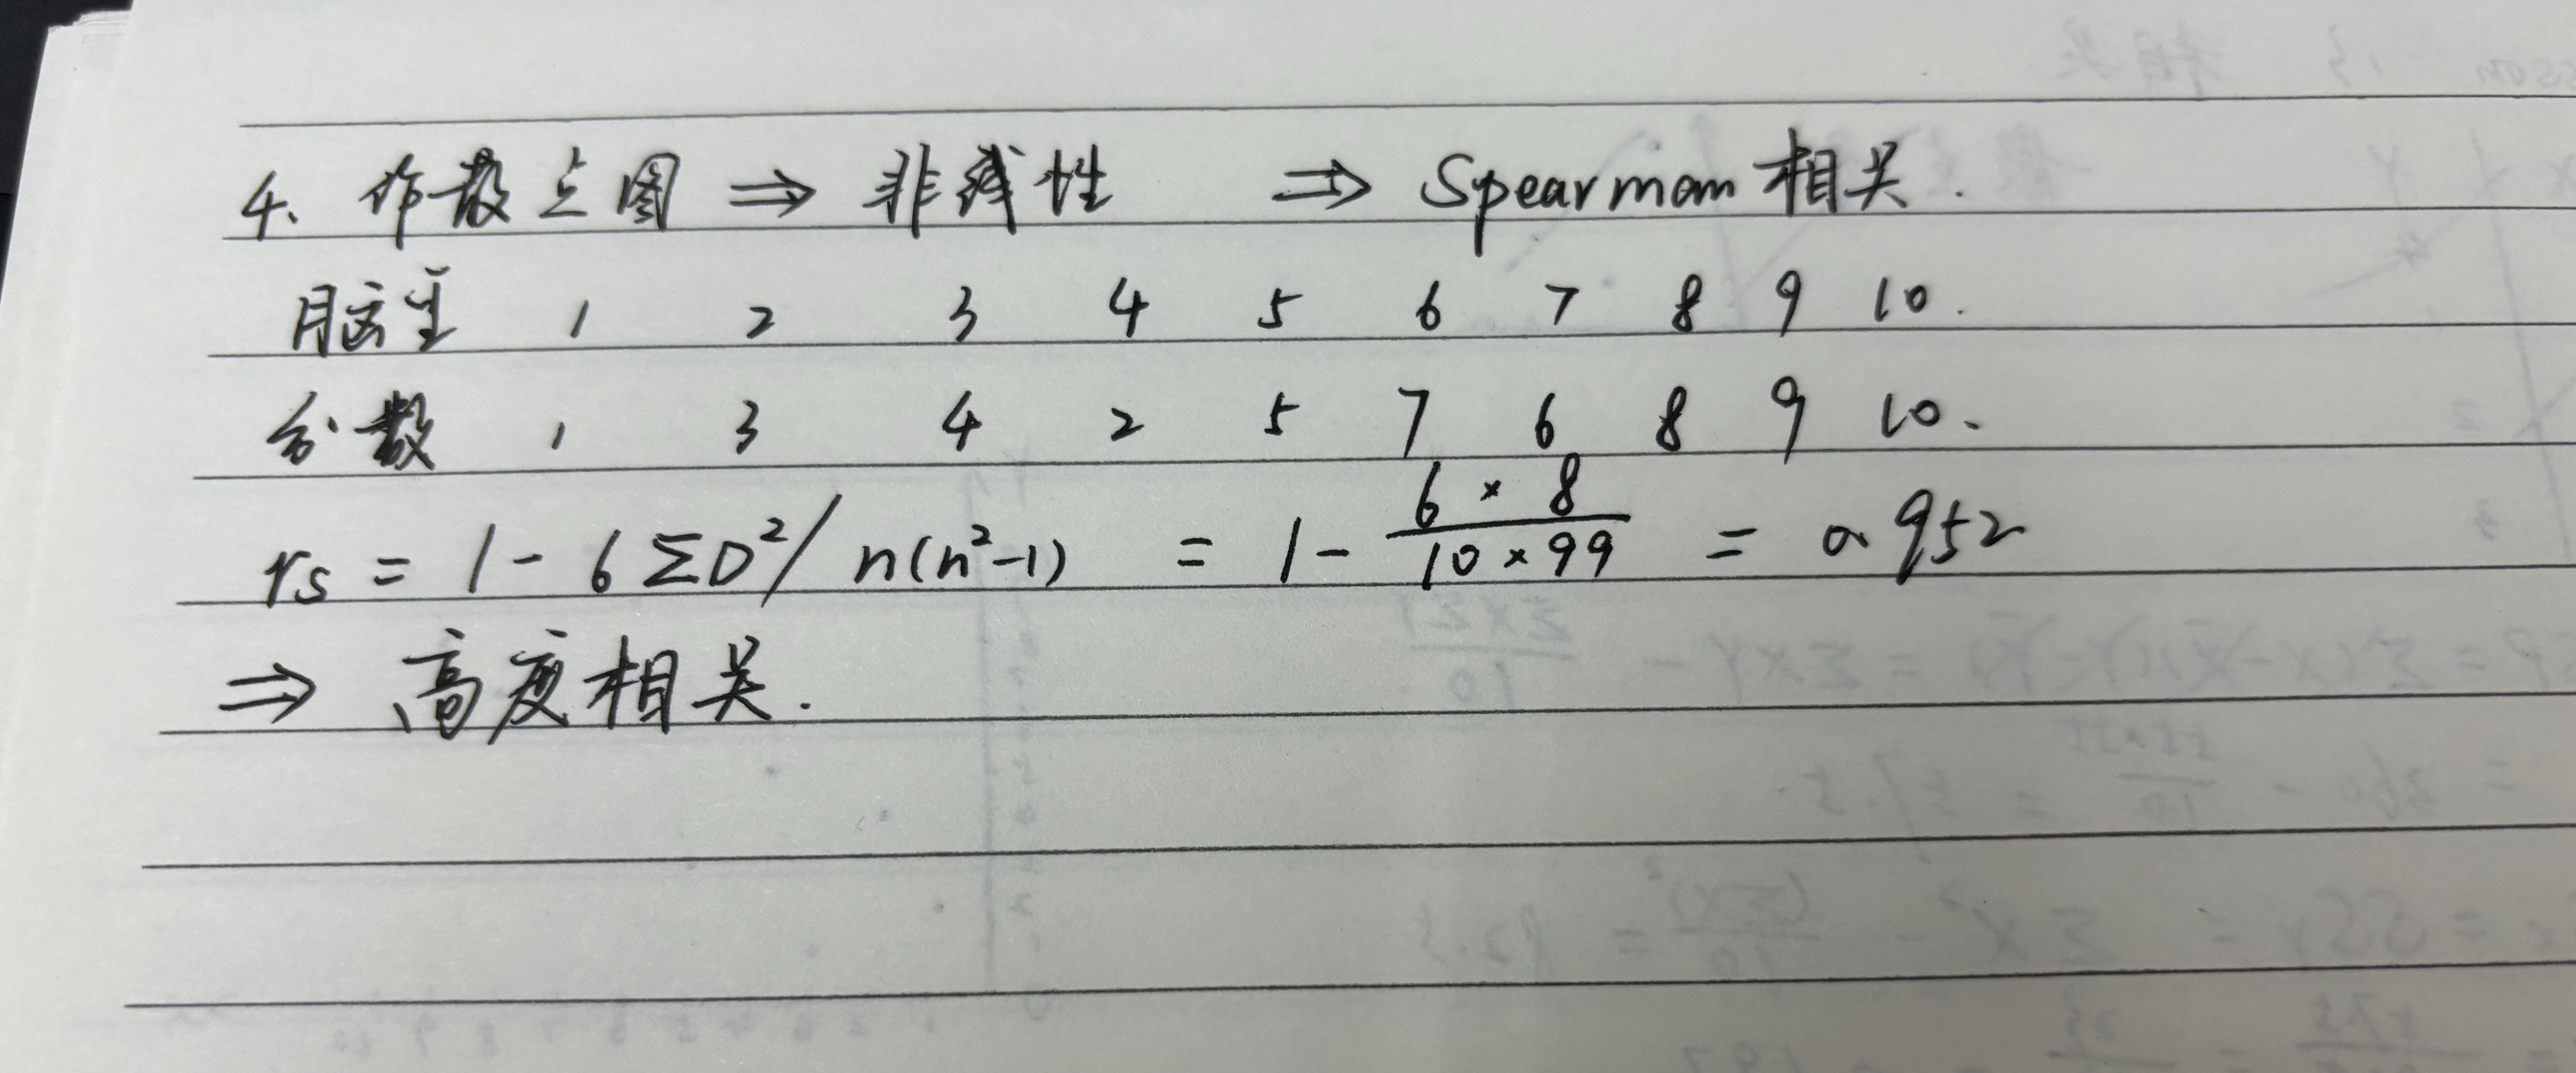 4、作散点图 ⇒ 非线性 ⇒ Spearman 相关.
脑重 1 2 3 4 5 6 7 8 9 10.
分数 1 3 4 2 5 7 6 8 9 10.
rs = 1 - 6 ΣD²/ n(n²-1) = 1 - 6 × 8 / 10 × 99 = 0.952
⇒ 高度相关.